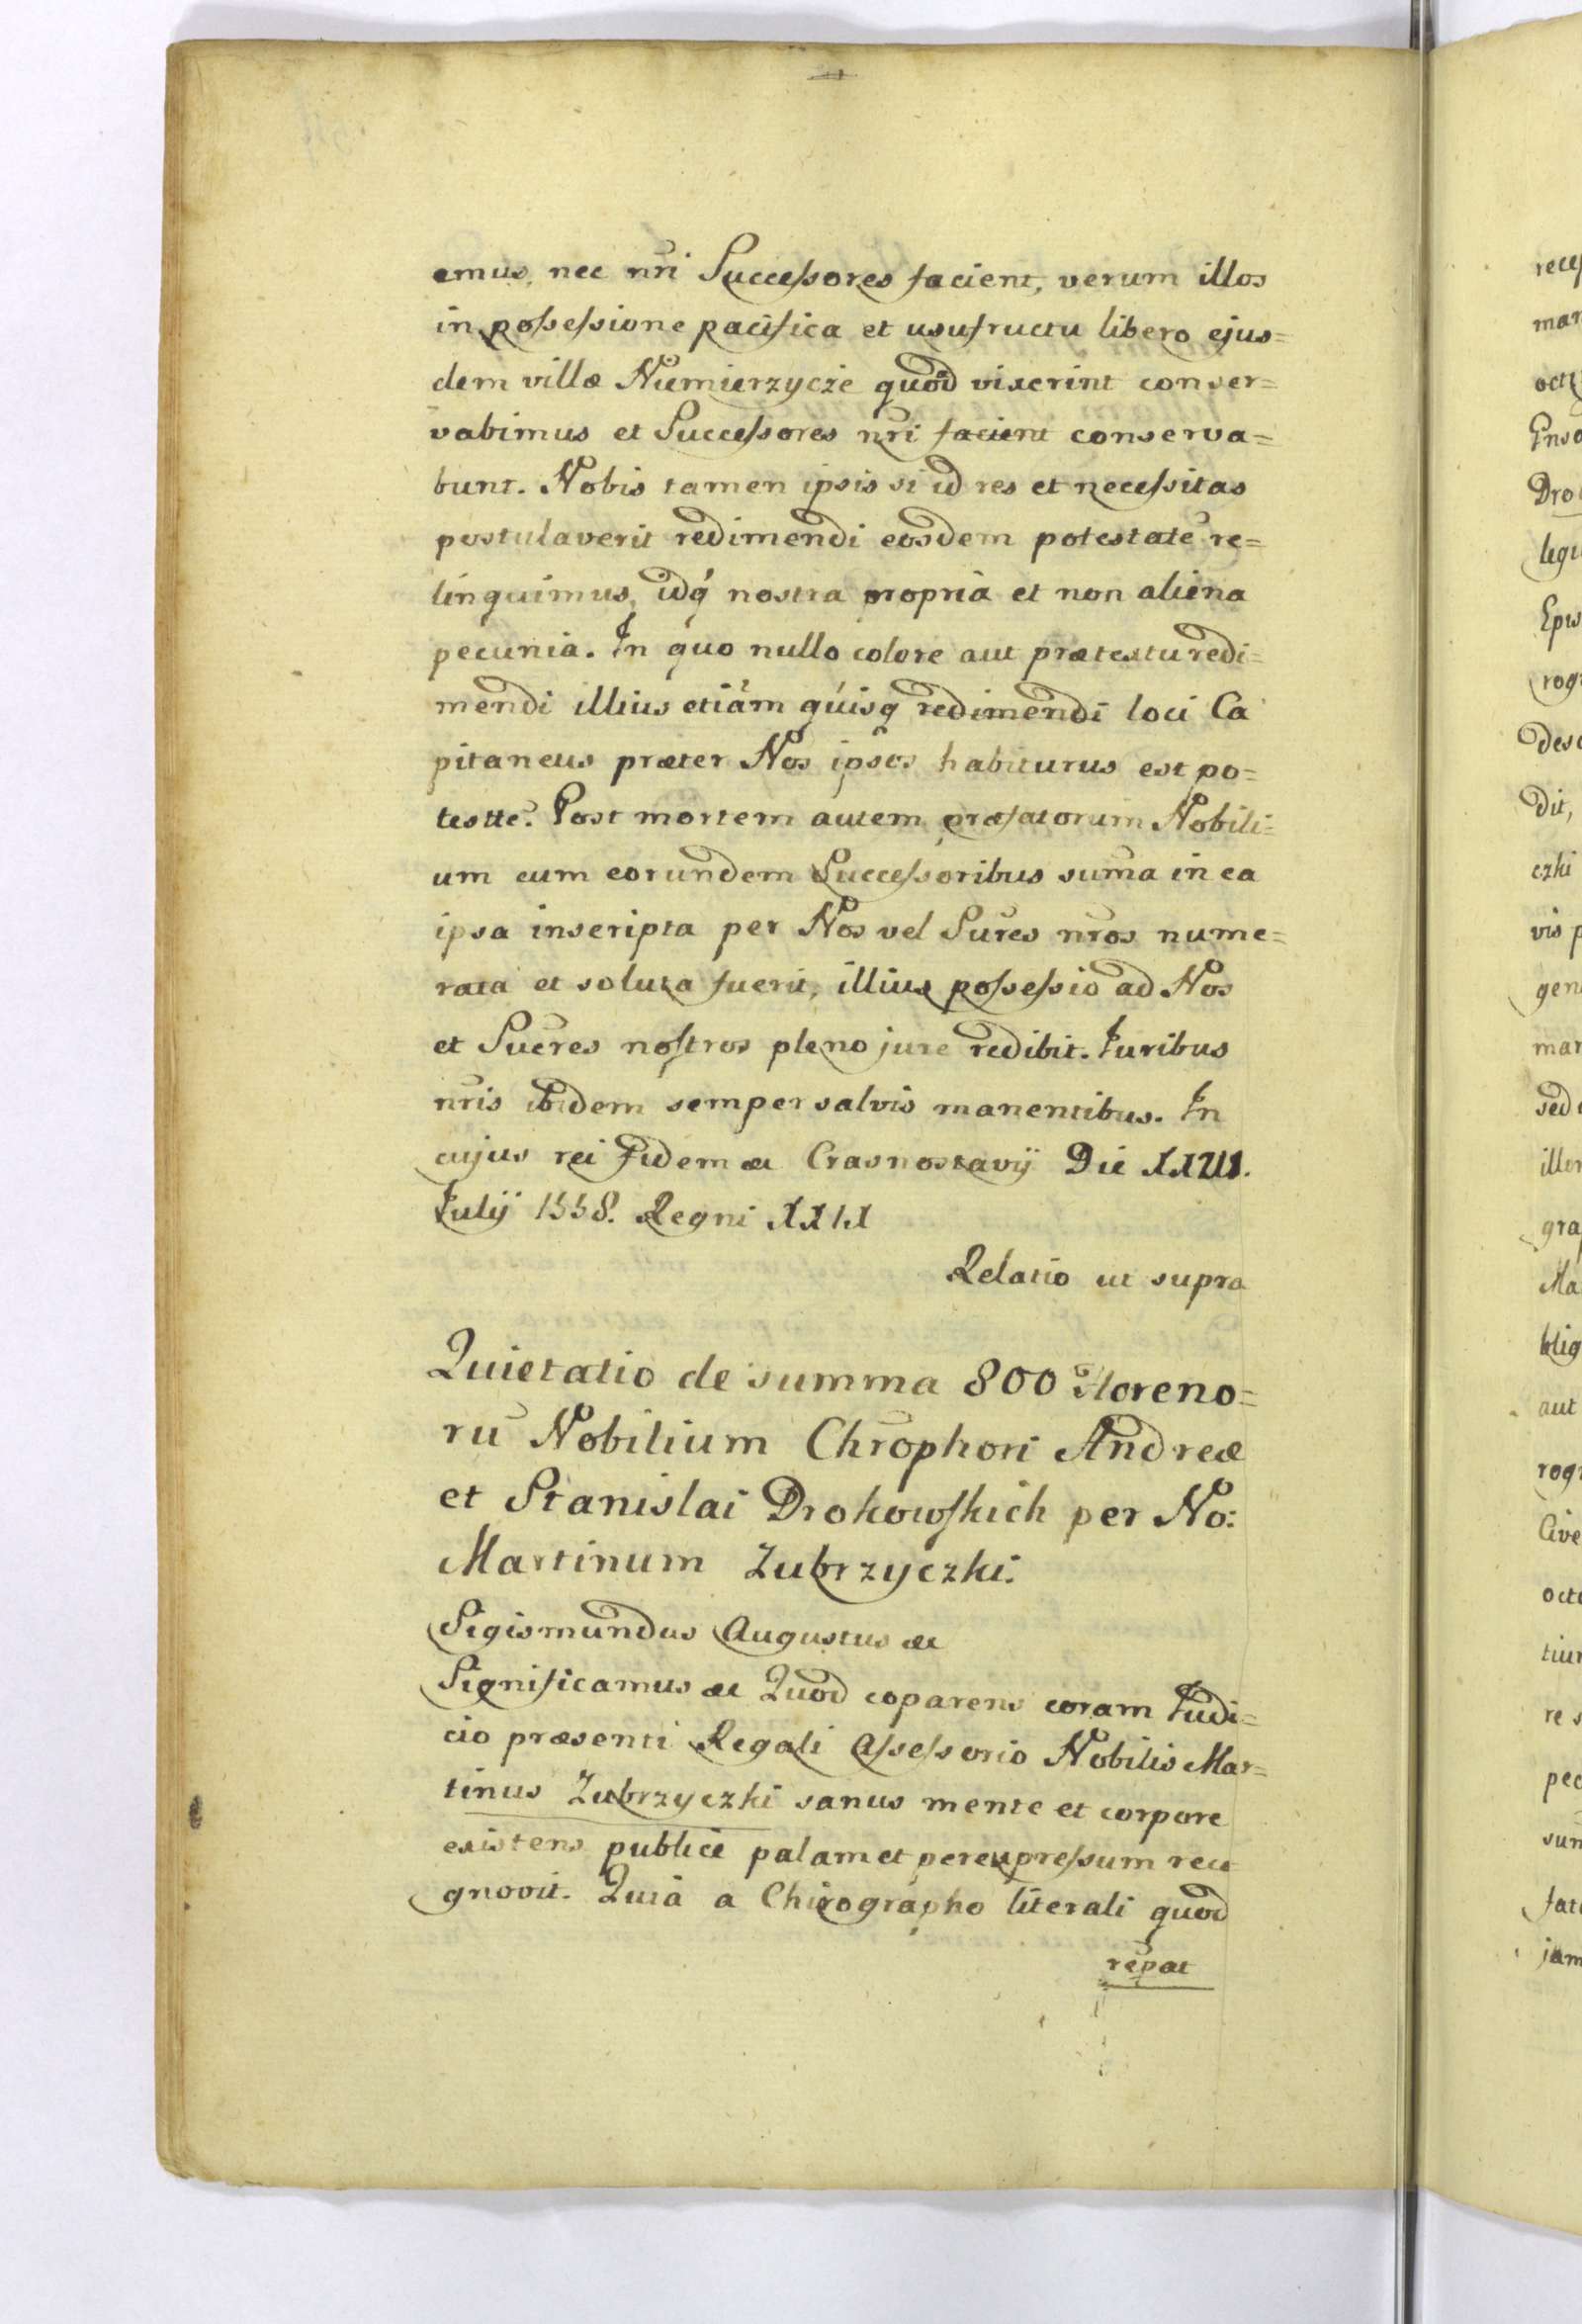 emus, nec nr̃i Successores facient, verum illos
in possessione pacifica et usufructu libero ejus=
dem villæ Niemierzycze quoad vixerint conser=
vabimus et Successores nr̃i facient conserva=
bunt. Nobis tamen ipsis si id res et necessitas
postulaverit redimendi eosdem potestatẽ re=
linquimus, idq́ nostra propria et non aliena
pecunia. In quo nullo colore aut prætextu redi=
mendi illius etiam quisq redimendi loci Ca
pitaneus præter Nos ipsos habiturus est po=
testtẽ. Post mortem autem præfatorum Nobili=
um cum eorundem Successoribus sum̃a in ea
ipsa inscripta per Nos vel Suc̃res nr̃os nume=
rata et soluta fuerit, illius possessio ad Nos
et Suc̃res nostros pleno jure redibit. Juribus
nr̃is ibidem semper salvis manentibus. In
cujus rei fidem &c Crasnostavij Die
Julij 1558. Regni XXIX
Relatio ut supra
Quietatio de summa 800 Floreno=
rũ Nobilium Chr̃ophori Andreæ
et Stanislai Drohowskich per No:
Martinum Zubrzyczki.
Sigismundus Augustus &c
Significamus &c Quod cõparens coram Judi=
cio præsenti Regali Assessorio Nobilis Mar=
tinus Zubrzyczki sanus mente et corpore
existens publice palam et per expressum reco
gnovit. Quia a Chirographo literali quod